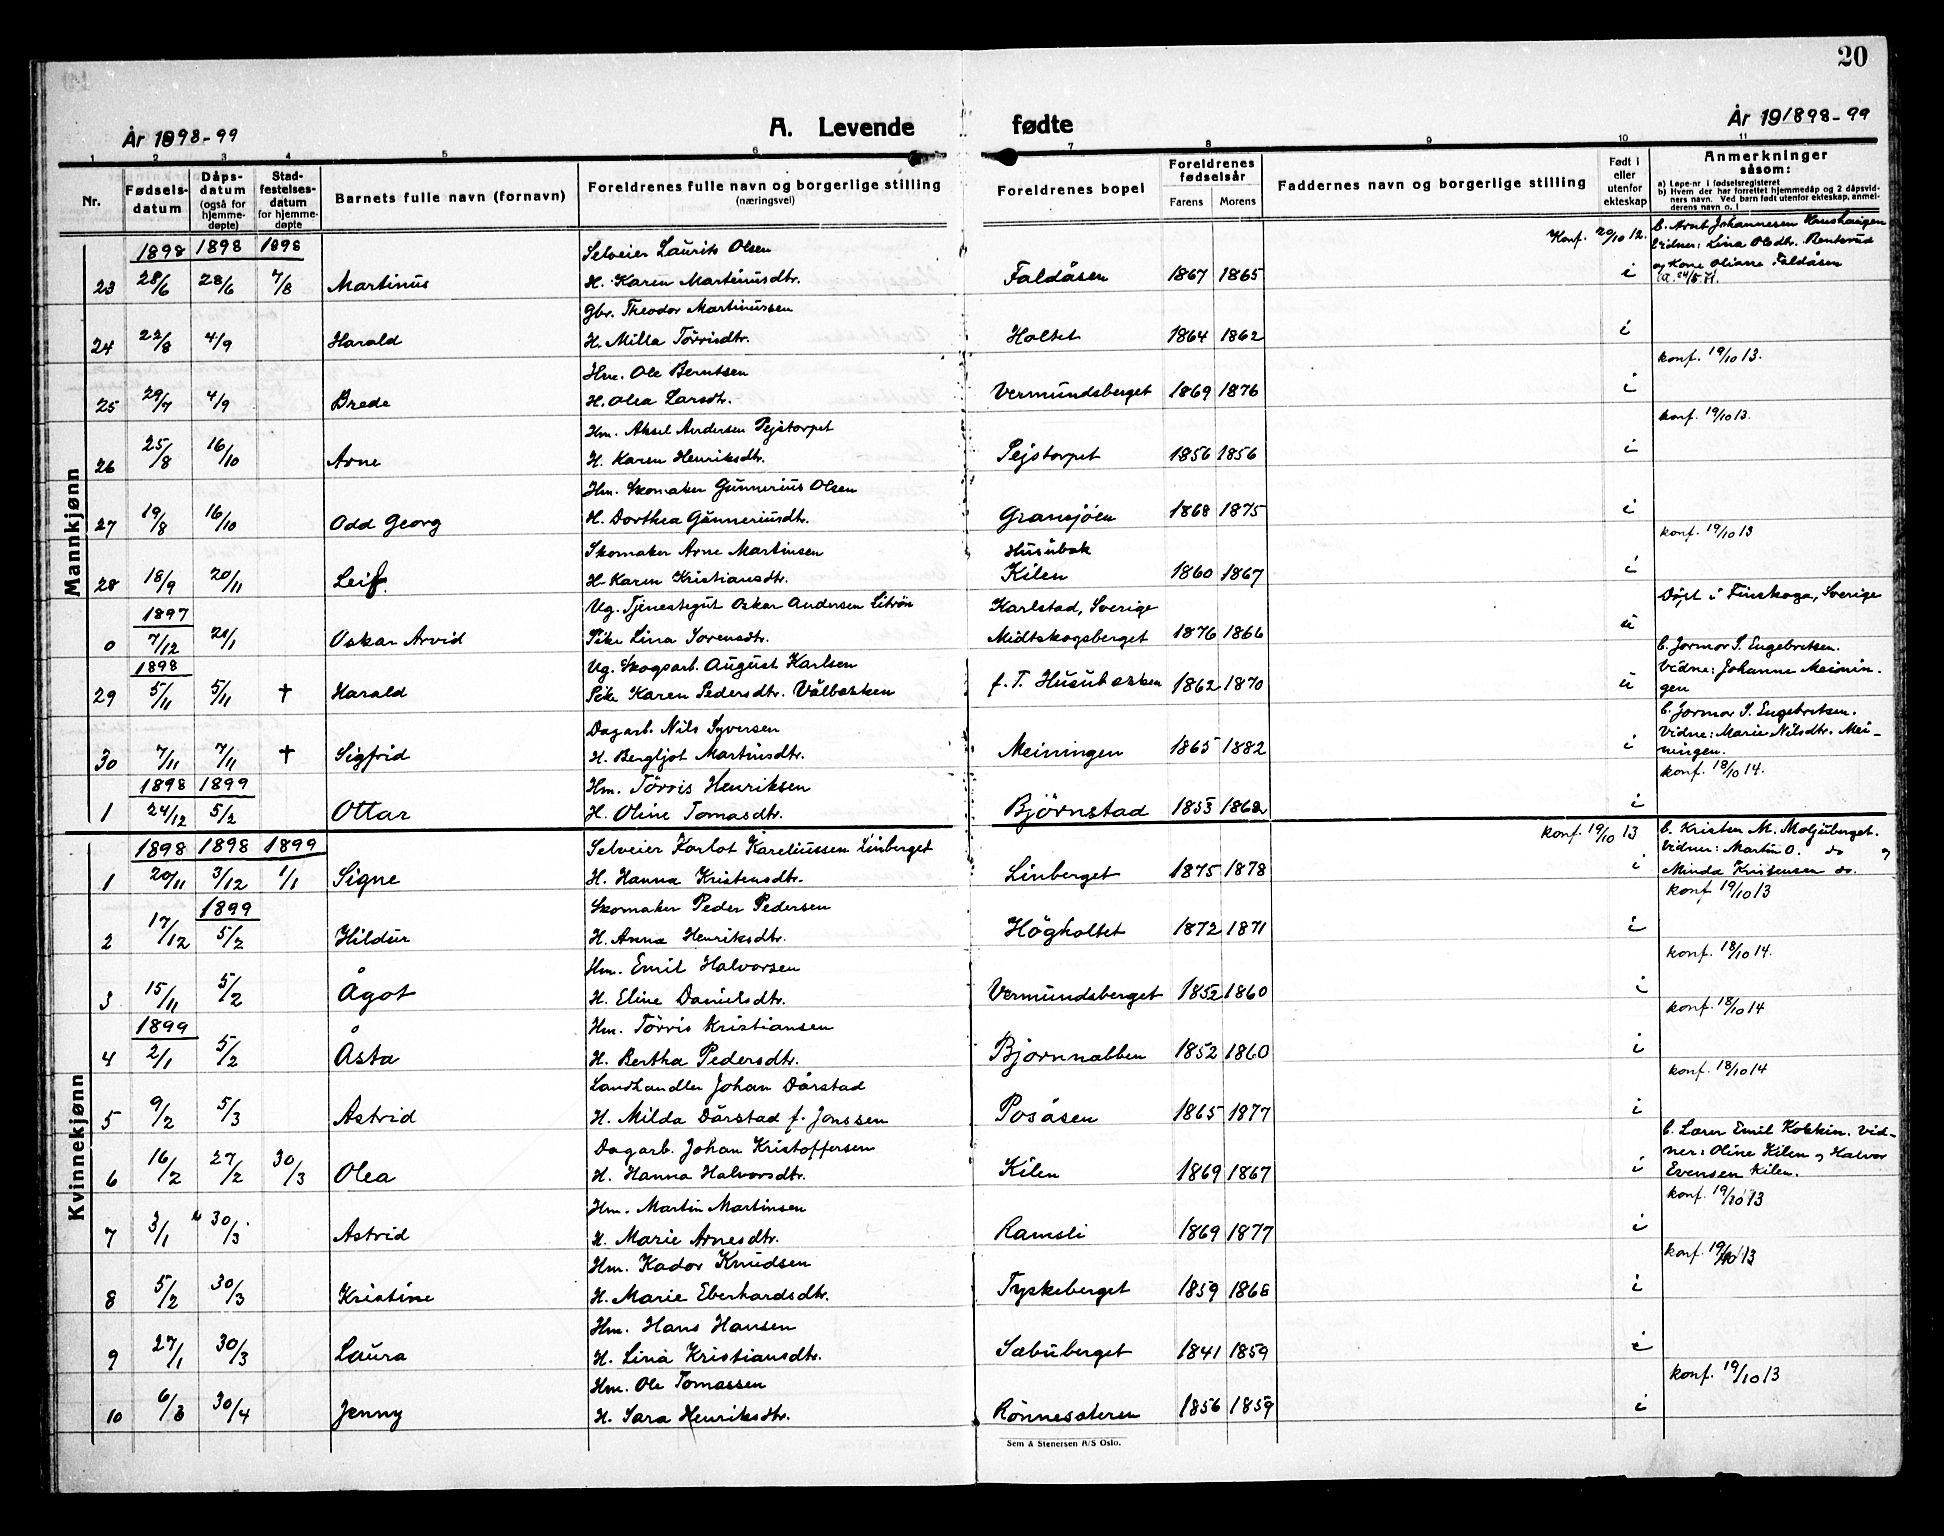 20
År 1898-99 A. Levende fødte År 191898-99
1 2 3 4 5 6 7 8 9 10 11
Nr. Fødsels-datum Dåps-datum (også for hjemme-døpte) Stad-festelses-datum for hjemme-døpte Barnets fulle navn (fornavn) Foreldrenes fulle navn og borgerlige stilling (næringsvei) Foreldrenes bopel Foreldrenes fødselsår Farens Morens Faddernes navn og borgerlige stilling Født i eller utenfor ekteskap Anmerkninger såsom: a) Løpe-nr i fødselsregisteret b) Hvem der har forrettet hjemmedåp og 2 dåpsvidners navn. Ved barn født utenfor ekteskap, anmelderens navn o. l
Mannkjønn
1898 1898 1898 Selveier Laurits Olsen Konf. 20/10 12. C. Arnt Johannesen
23 28/6 28/6 7/8 Martinus H. Karen Martinusdtr. Faldåsen 1867 1865 i Vidner: Lina Olsdtr. og Kone Oliane Faldåsen
Gbr. Theodor Martinussen
24 22/8 4/9 Harald H. Milla Törrisdtr. Holtet 1864 1862 i
Hm. Ole Berntsen konf. 19/10 13.
25 29/7 4/9 Brede H. Olea Larsdtr. Vermundsberget 1869 1876 i
Hm. Aksel Andersen Pejstorpet konf. 19/10 13.
26 25/8 16/10 Arne H. Karen Henriksdtr. Pejstorpet 1856 1856 i
Hm. Skomaker Gunnerius Olsen
27 19/8 16/10 Odd Georg H. Dorthea Gunneriusdtr. Gransjöen 1868 1875 i
Skomaker Arne Martinsen Husubak konf. 19/10 13
28 18/9 20/11 Leif. H. Karen Kristiansdtr. Kilen 1860 1867 i
1897 Ug. Tjenestegut Oskar Andersen Karlstad, Sverige Döpt i Finskoga, Sverige
0 7/12 20/1 Oskar Arvid Pike Lina Sorensdtr. Midtskogsberget 1876 1866 u
1898 Ug. Skogsarb. August Karlsen C. Jormor S. Engebretsen.
29 5/11 5/11 † Harald Pike Karen Pedersdtr. Vålbakken f. T. Husubakken 1862 1870 u Vidne: Johanne Meinin-gen
Dagarb. Nils Syversen C. Jormor S. Engebretsen.
30 7/11 7/11 † Sigfrid H. Bergljot Martinsdtr. Meiningen 1865 1882 i Vidne: Marie Nilsdtr. Mei-ningen.
1898 1899 Hm. Törris Henriksen konf. 18/10 14.
1 24/12 5/2 Ottar H. Oline Tomasdtr. Björnstad 1853 1862 i
Kvinnekjønn
1898 1898 1899 Selveier Karlot Kareliussen Linberget konf. 19/10 13 C. Kristen M. Moljuberget.
1 20/11 3/12 1/1 Signe H. Hanna Kristensdtr. Linberget 1875 1878 i Vidner: Martin O. do og Minda Kristensen do.
1899 Skomaker Peder Pedersen konf. 19/10 13
2 17/12 5/2 Hildur H. Anna Henriksdtr. Högholtet 1872 1871 i
Hm. Emil Halvorsen konf. 18/10 14.
3 15/11 5/2 Ågot H. Eline Danielsdtr. Vermundsberget 1852 1860 i
1899 Hm. Törris Kristiansen konf. 18/10 14
4 2/1 5/2 Åsta H. Bertha Pedersdtr. Björnnabben 1852 1860 i
Landhandler Johan Dårstad konf. 18/10 14
5 9/2 5/3 Astrid H. Milda Dårstad f. Jonssen Posåsen 1865 1877 i
Dagarb. Johan Kristoffersen C. Lærer Emil Kolkin. Vid-
6 16/2 27/2 30/3 Olea H. Hanna Halvorsdtr. Kilen 1869 1867 i ner: Oline Kilen og Halvor Evensen Kilen.
Hm. Martin Martinsen konf. 19/10 13
7 3/1 30/3 Astrid H. Marie Arnesdtr. Ramsli 1869 1877 i
Hm. Kador Knudsen konf. 19/10 13
8 5/2 30/3 Kristine H. Marie Eberhardsdtr. Tyskeberget 1859 1868 i
Hm. Hans Hansen
9 27/1 30/3 Laura H. Lina Kristiansdtr. Sæbuberget 1841 1859 i
Hm. Ole Tomassen konf. 19/10 13
10 6/3 30/4 Jenny H. Sara Henriksdtr. Rönnesæteren 1856 1859 i
Sem & Stenersen A/S Oslo.